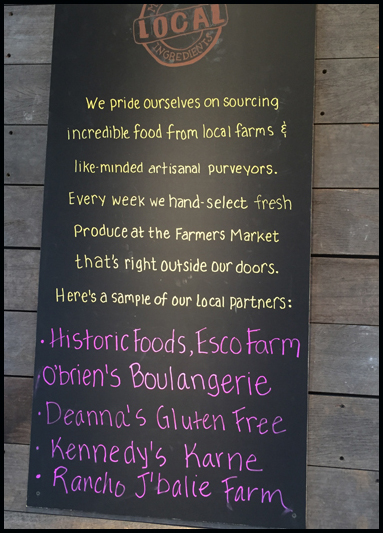 LOCAL
INGREDIENTS
We pride ourselves on sourcing
incredible food from local farms &
like-minded artisanal purveyors.
Every week we hand-select fresh
Produce at the Farmers Market
that's right outside our doors.
Here's a sample of our local partners:
• Historic Foods, Esco Farm
• O'brien's Boulangerie
• Deanna's Gluten Free
• Kennedy's Karne
• Rancho J'balie Farm